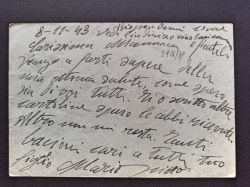 8-11-43
Carissima Mamma e fratelli
vengo a farti sapere della
mia ottima salute, come spero
sia di voi tutti. Ti ò scritto altre
cartoline spero le abbi ricevute
Altro non mi resta. Tanti
bacioni cari a tutti tuo
figlio Mario